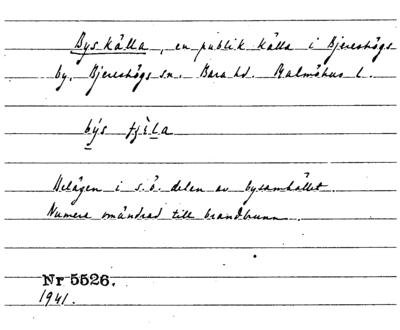 Bys källa, en publik källa i Bjereshögs
by, Bjereshögs sn. Bara hd. Malmöhus l.
býs tjɛ̀la
Belägen i s.ö. delen av bysamhället.
Numera omändrad till brandbrunn.
Nr 5526.
1941.